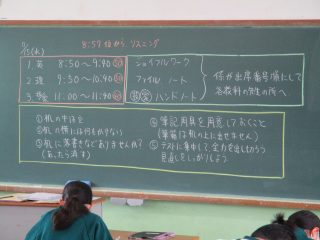 8:57頃から リスニング
1 英 8:50〜9:40 50
2 理 9:50〜10:40 50
3 社会 11:00〜11:50
ジョイフルワーク
ファイル ノート
ハンドノート
係が出席番号順にして
各教科の先生の所へ
①机の中は空
②机の横には何もかけない
③机に落書きなどありませんか?
(あったら消す)
④筆記用具を用意しておくこと
(筆箱は机の上に出せません)
⑤テストに集中して、全力を出し切ろう
見直しをしっかりしよう